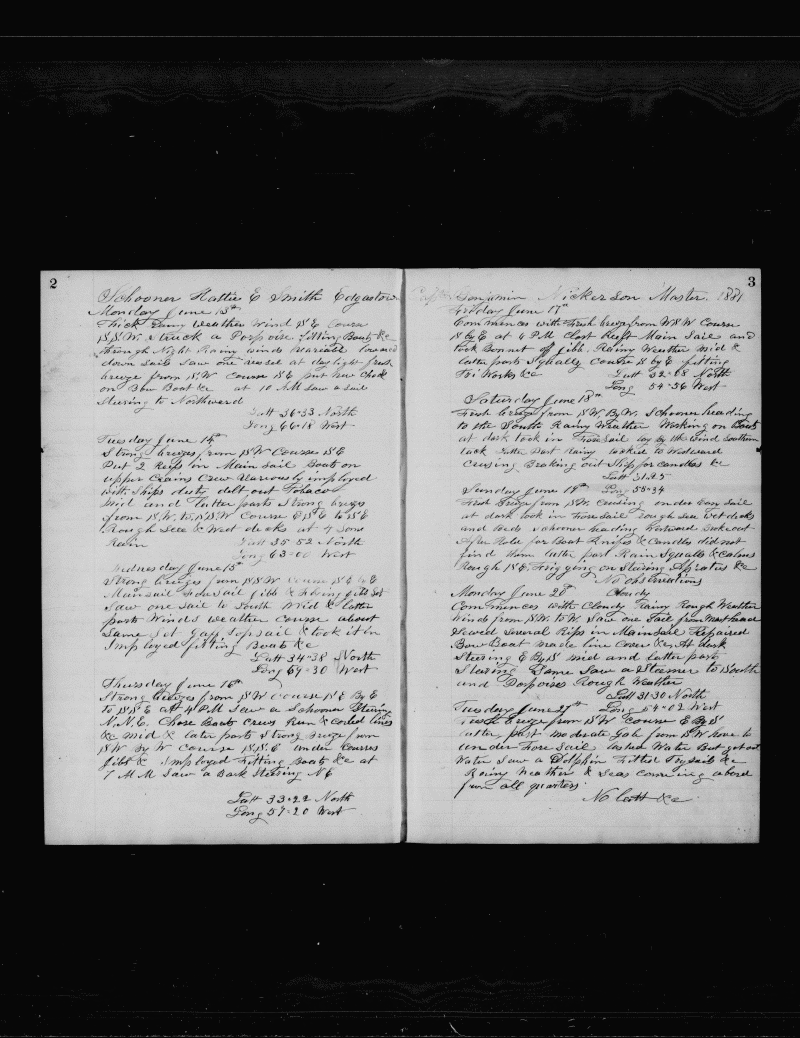 2
Schooner Hattie E Smith Edgartown
Monday June 13th
Thick Rainy Weather Wind S E Course
S.S.W. Struck a Porpoise fitting Boats &c
through Night Rainy winds Variable
down Sails Saw one vessel at daylight fresh
breeze from S W Course S E put new Chock
on Bow Boat &c at 10 AM Saw a Sail
Steering to Northward
Latt 36=33 North
Long 66=18 West
Tuesday June 14th
Strong breezes from S W Course S E
Put 2 Reefs in Main Sail Boats on
upper Crains Crew Variously imployed
with Ships duty delt out Tobaco
Mid and latter parts Strong brezes
from S.W. to S.S.W Course to S E
Rough Sea & Wet decks at 4
Rain Latt 35 52 North
Long 63=00 West
Wednesday June 15th
Strong breezes from S S W Course S E by E
Mainsail Foresail jibb & flying jibb Set
Saw one Sail to South Mid & latter
parts Winds weather course about
Same Set Gaff Topsail & took it in
Imployed fitting Boats &c
Latt 34=38 North
Long 30 West
Thursday June 16th
Strong breezes from S W Course S E By E
to S S E at 4 PM Saw a Schooner Steering
N.N.E. Chose Boats Crews Run & coiled lines
&c mid & later parts Strong breeze from
S W By W Course S.S.E under Courses
jibb & Imployed Fitting Boats &c at
7 AM Saw a Bark Steering N E
Latt 33=22 North
Long 57=20 West
3
Capt Benjamin Nickerson Master. 1881
Friday June 17th
Commences with Fresh breze from W S W Course
S by E at 4 PM Clost Reeft Main Sail and
took Bonnet of jibb. Rainy Weather mid &
latter parts Squally Course S by E fitting
Tri Works &c Latt 32=08 North
Long 54=56 West
Saturday June 18th
Fresh breeze from S W. By W. Schooner heading
to the South Rainy Weather Working on Boats
at dark took in Fore Sail lay by the Wind Southern
tack latter Part Rainy tacked to Westward
Cruising Braking out Ship for Candles &c
Latt 31.25
Sunday June 19th Long 55=34
Fresh Breeze from S W Cruising under Easy Sail
at dark took in Fore Sail Rough Sea Wet decks
and beds Schooner heading Westward Broke out
After Hole for Boat Knifes & Candles did not
find them latter part Rain Squalls & Calms
Rough Sea. Frigging on Steering Aperatus &c
No observations
Monday June 20th Cloudy
Commences with Cloudy Rainy Rough Weather
Winds from S W. to W. Saw one Sail from Mast head
Sewed Several Rips in Main Sail Repaired
Bow Boat made line Cover &c. At dark
Steering E By S mid and latter part
Steering Same Saw a Steamer to South
and Porpoises Rough Weather
Latt 31=30 North
Tuesday June 21st Long 54=02 West
Fresh breeze from S W Course E By S
latter part moderate Gale from S W hove to
under Fore Sail lashed Water But got out
Water Saw a Dolphin Fitted Trysail &c
Rainy Weather & Seas coming abord
from all quarters
No latt &c